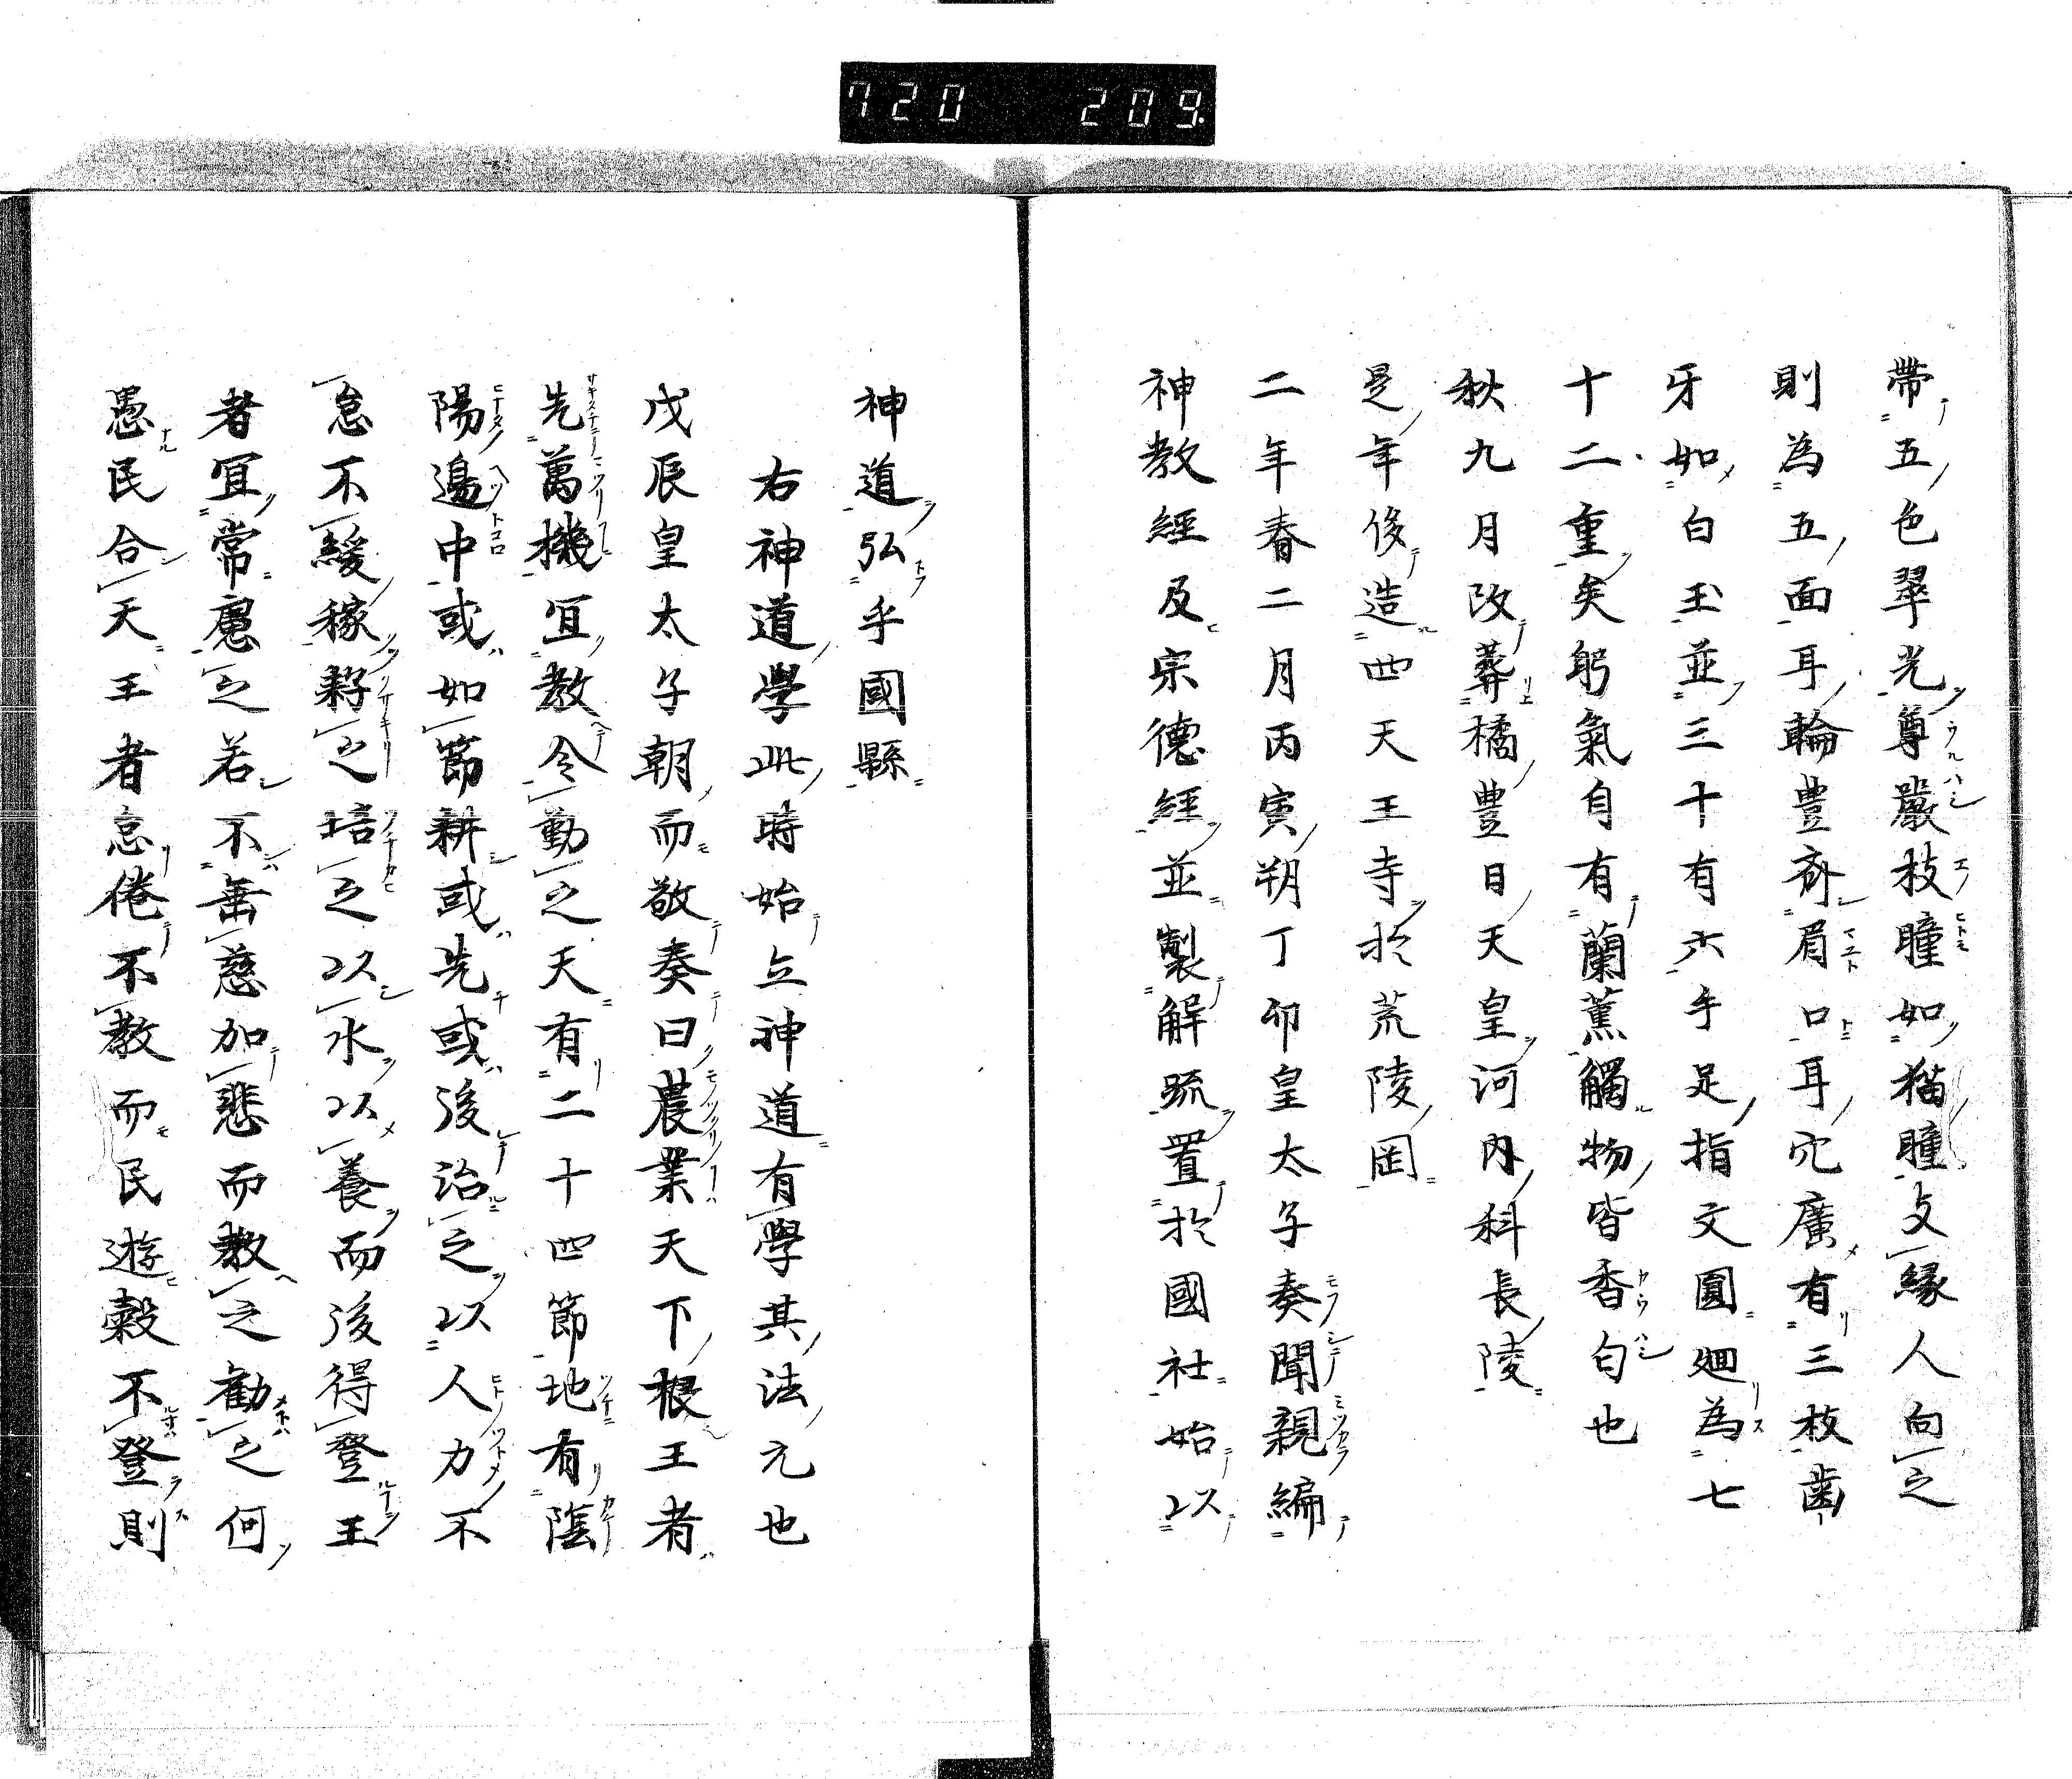 720 209
帶五色翠光尊嚴枝瞳如猫瞳文縁人向之
則為五面耳輪豊齊眉口耳穴廣有三枝歯
牙如白玉並三十有六手足指文圓廻為七
十二重矣躬氣自有蘭薫觸物皆香匂也
秋九月改葬橘豊日天皇河内科長陵
是年俊造四天王寺於荒陵岡
二年春二月丙寅朔丁卯皇太子奏聞親編
神教經及宗德經並製解䟽置於國社始以
神道弘乎國縣
右神道學此時始立神道有學其法元也
戊辰皇太子朝而敬奏曰農業天下根王者
先萬機宜教令勤之天有二十四節地有陰
陽邊中或如節耕或先或後治之以人力不
怠不緩稼耔之培之以水以養而後得登王
者宜常慮之若不缶慈加悲而教之勸之何
愚民合天王者怠倦不教而民遊穀不登則